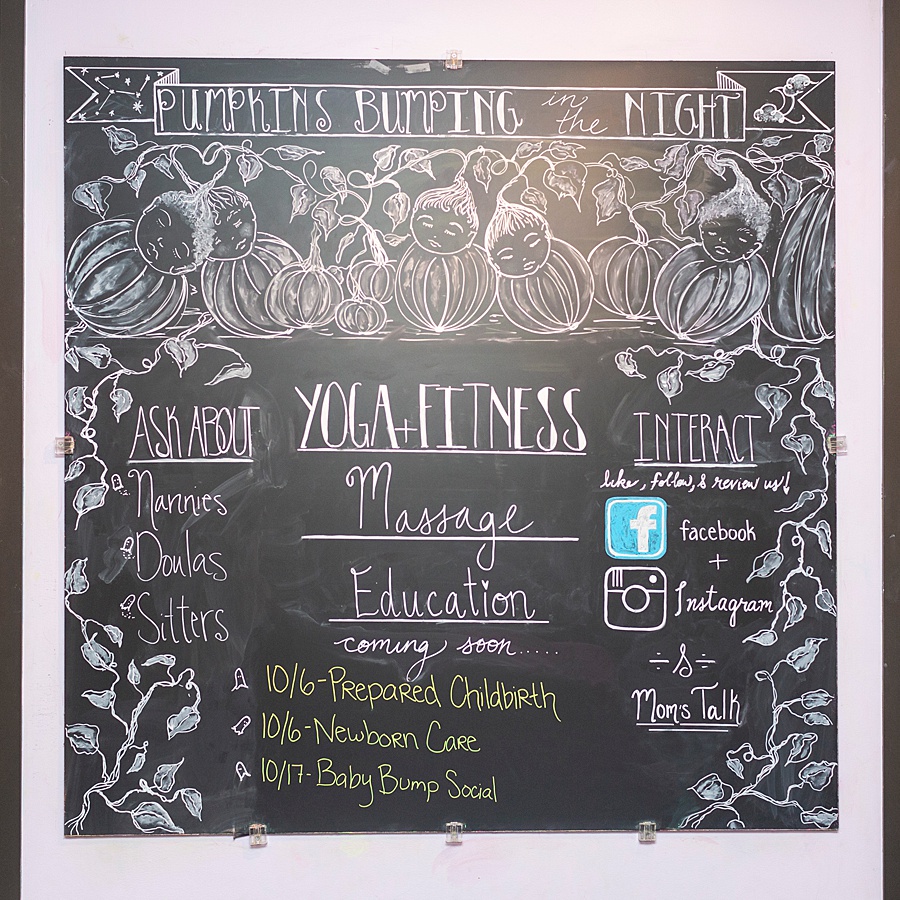 PUMPKINS BUMPING in the NIGHT
ASK ABOUT
Nannies
Doulas
Sitters
YOGA+FITNESS
Massage
Education
coming soon.....
10/6-Prepared Childbirth
10/6-Newborn Care
10/17-Baby Bump Social
INTERACT
like, follow, & review us!
f facebook
+
Instagram
-&-
Mom's Talk